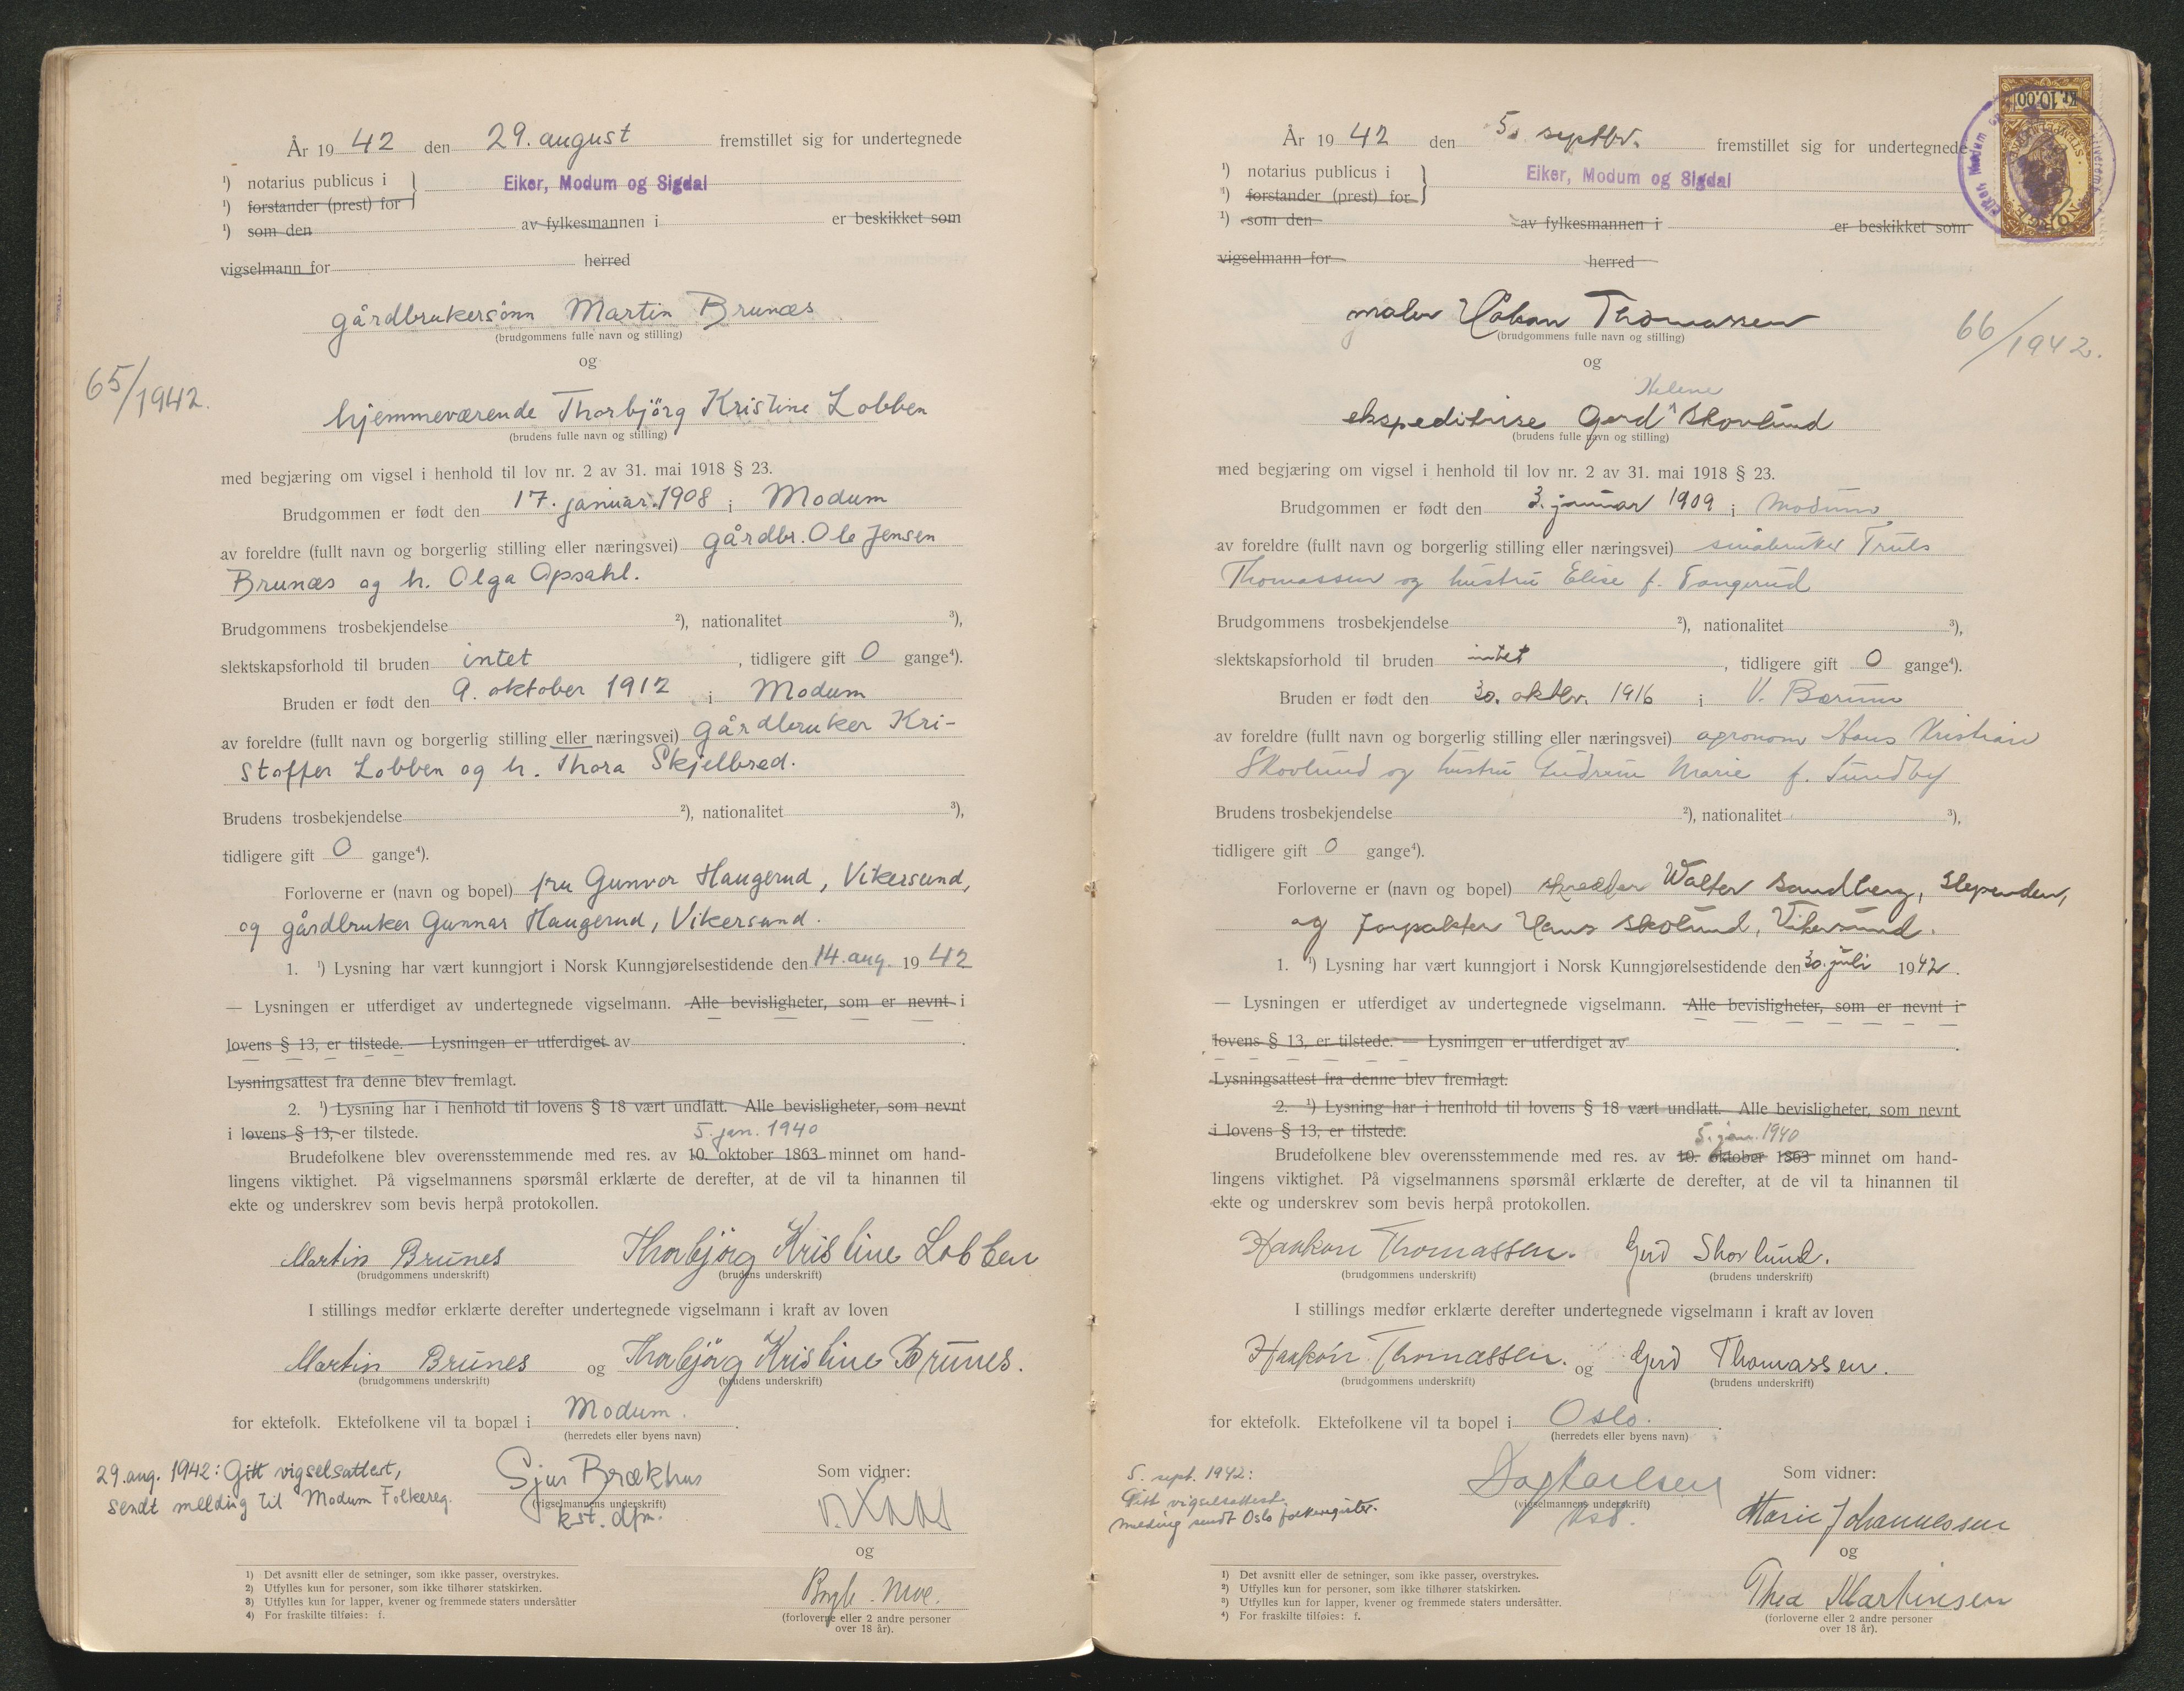 År 1942 den 29. august fremstillet sig for undertegnede
¹) notarius publicus i } Eiker, Modum og Sigdal
¹) forstander (prest) for
¹) som den av fylkesmannen i er beskikket som
vigselmann for herred
gårdbrukersønn Martin Brunæs
(brudgommens fulle navn og stilling)
og
65/1942.
hjemmeværende Thorbjörg Kristine Lobben
(brudens fulle navn og stilling)
med begjæring om vigsel i henhold til lov nr. 2 av 31. mai 1918 § 23.
Brudgommen er født den 17. januar 1908 i Modum
av foreldre (fullt navn og borgerlig stilling eller næringsvei) gårdbr. Ole Jensen
Brunæs og h. Olga Opsahl.
Brudgommens trosbekjendelse ²), nationalitet ³),
slektskapsforhold til bruden intet, tidligere gift 0 gange⁴).
Bruden er født den 9. oktober 1912 i Modum
av foreldre (fullt navn og borgerlig stilling eller næringsvei) gårdbruker Kri-
stoffer Lobben og h. Thora Skjelbred.
Brudens trosbekjendelse ²), nationalitet ³),
tidligere gift 0 gange⁴).
Forloverne er (navn og bopel) fru Gunvor Haugerud, Vikersund,
og gårdbruker Gunnar Haugerud, Vikersund.
1. ¹) Lysning har vært kunngjort i Norsk Kunngjørelsestidende den 14. aug. 1942
— Lysningen er utferdiget av undertegnede vigselmann. Alle bevisligheter, som er nevnt i
lovens § 13, er tilstede. — Lysningen er utferdiget av .
Lysningsattest fra denne blev fremlagt.
2. ¹) Lysning har i henhold til lovens § 18 vært undlatt. Alle bevisligheter, som nevnt
i lovens § 13, er tilstede. 5. jan. 1940
Brudefolkene blev overensstemmende med res. av 10. oktober 1863 minnet om hand-
lingens viktighet. På vigselmannens spørsmål erklærte de derefter, at de vil ta hinannen til
ekte og underskrev som bevis herpå protokollen.
Martin Brunes Thorbjörg Kristine Lobben
(brudgommens underskrift) (brudens underskrift)
I stillings medfør erklærte derefter undertegnede vigselmann i kraft av loven
Martin Brunes og Thorbjörg Kristine Brunes.
(brudgommens underskrift) (brudens underskrift)
for ektefolk. Ektefolkene vil ta bopæl i Modum.
(herredets eller byens navn)
29. aug. 1942: Gitt vigselsattest,
sendt melding til Modum Folkereg.
Sjur Brækhus
(vigselmannens underskrift)
kst. dfm.
Som vidner:
og
(forloverne eller 2 andre personer
over 18 år).
1) Det avsnitt eller de setninger, som ikke passer, overstrykes.
2) Utfylles kun for personer, som ikke tilhører statskirken.
3) Utfylles kun for lapper, kvener og fremmede staters undersåtter
4) For fraskilte tilføies: f.
År 1942 den 5. septbr. fremstillet sig for undertegnede
¹) notarius publicus i } Eiker, Modum og Sigdal
¹) forstander (prest) for
¹) som den av fylkesmannen i er beskikket som
vigselmann for herred
Kr. 10.00
NORGE
maler Håkon Thomassen
(brudgommens fulle navn og stilling)
66/1942.
og
Helene
ekspeditrise Gerd ^ Skovlund
(brudens fulle navn og stilling)
med begjæring om vigsel i henhold til lov nr. 2 av 31. mai 1918 § 23.
Brudgommen er født den 3. januar 1909 i Modum
av foreldre (fullt navn og borgerlig stilling eller næringsvei) småbruker Truls
Thomassen og hustru Elise f. Tangerud
Brudgommens trosbekjendelse ²), nationalitet ³),
slektskapsforhold til bruden intet, tidligere gift 0 gange⁴).
Bruden er født den 30. oktbr. 1916 i V. Bærum
av foreldre (fullt navn og borgerlig stilling eller næringsvei) agronom Hans Kristian
Skovlund og hustru Gudrun Marie f. Sundby
Brudens trosbekjendelse ²), nationalitet ³),
tidligere gift 0 gange⁴).
Forloverne er (navn og bopel) skredder Walter Sandberg, Slependen,
og forpakter Hans Skolund, Vikersund.
1. ¹) Lysning har vært kunngjort i Norsk Kunngjørelsestidende den 30. juli 1942.
— Lysningen er utferdiget av undertegnede vigselmann. Alle bevisligheter, som er nevnt i
lovens § 13, er tilstede. — Lysningen er utferdiget av .
Lysningsattest fra denne blev fremlagt.
2. ¹) Lysning har i henhold til lovens § 18 vært undlatt. Alle bevisligheter, som nevnt
i lovens § 13, er tilstede. 5. jan. 1940
Brudefolkene blev overensstemmende med res. av 10. oktober 1863 minnet om hand-
lingens viktighet. På vigselmannens spørsmål erklærte de derefter, at de vil ta hinannen til
ekte og underskrev som bevis herpå protokollen.
Haakon Thomassen. Gerd Skovlund.
(brudgommens underskrift) (brudens underskrift)
I stillings medfør erklærte derefter undertegnede vigselmann i kraft av loven
Haakon Thomassen. og Gerd Thomassen.
(brudgommens underskrift) (brudens underskrift)
for ektefolk. Ektefolkene vil ta bopel i Oslo.
(herredets eller byens navn)
5. sept. 1942:
Gitt vigselsattest.
melding sendt Oslo folkeregister.
Dag Carlsen
(vigselmannens underskrift)
Som vidner:
Marie Johannessen
og
Thea Martinsen
(forloverne eller 2 andre personer
over 18 år).
1) Det avsnitt eller de setninger, som ikke passer, overstrykes.
2) Utfylles kun for personer, som ikke tilhører statskirken.
3) Utfylles kun for lapper, kvener og fremmede staters undersåtter.
4) For fraskilte tilføies: f.